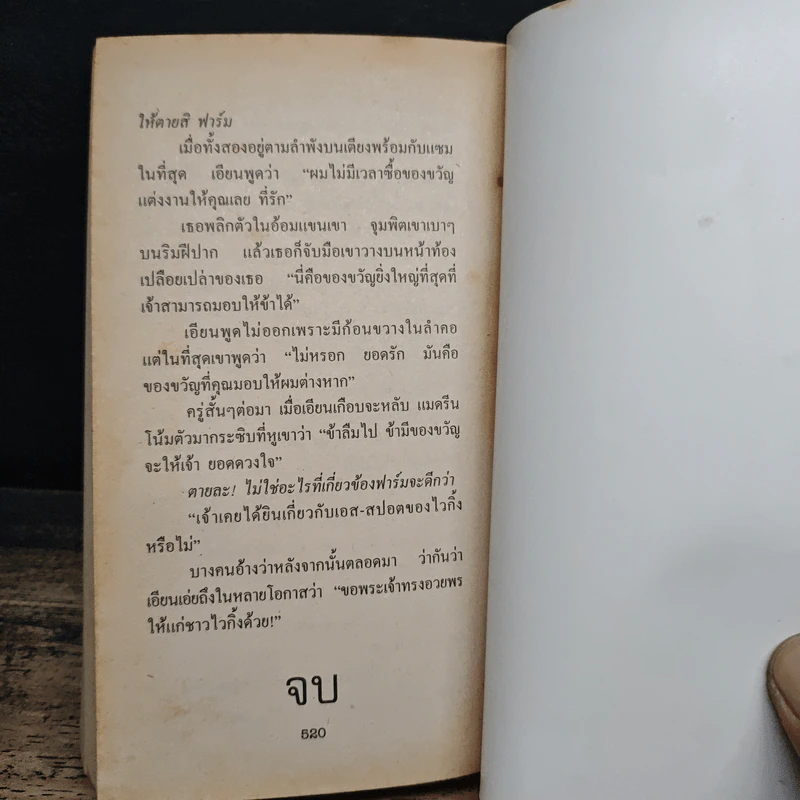 ให้ตายสิ ฟาร์ม
เมื่อทั้งสองอยู่ตามลำพังบนเตียงพร้อมกับแซม
ในที่สุด เอียนพูดว่า “ผมไม่มีเวลาซื้อของขวัญ
แต่งงานให้คุณเลย ที่รัก”
เธอพลิกตัวในอ้อมแขนเขา จุมพิตเขาเบาๆ
บนริมฝีปาก แล้วเธอก็จับมือเขาวางบนหน้าท้อง
เปลือยเปล่าของเธอ “นี่คือของขวัญยิ่งใหญ่ที่สุดที่
เจ้าสามารถมอบให้ข้าได้”
เอียนพูดไม่ออกเพราะมีก้อนขวางในลำคอ
แต่ในที่สุดเขาพูดว่า “ไม่หรอก ยอดรัก มันคือ
ของขวัญที่คุณมอบให้ผมต่างหาก”
ครู่สั้นๆต่อมา เมื่อเอียนเกือบจะหลับ แมดรีน
โน้มตัวมากระซิบที่หูเขาว่า “ข้าลืมไป ข้ามีของขวัญ
จะให้เจ้า ยอดดวงใจ”
ตายละ! ไม่ใช่อะไรที่เกี่ยวข้องฟาร์มจะดีกว่า
“เจ้าเคยได้ยินเกี่ยวกับเอส-สปอตของไวกิ้ง
หรือไม่”
บางคนอ้างว่าหลังจากนั้นตลอดมา ว่ากันว่า
เอียนเอ่ยถึงในหลายโอกาสว่า “ขอพระเจ้าทรงอวยพร
ให้แก่ชาวไวกิ้งด้วย!”
จบ
520